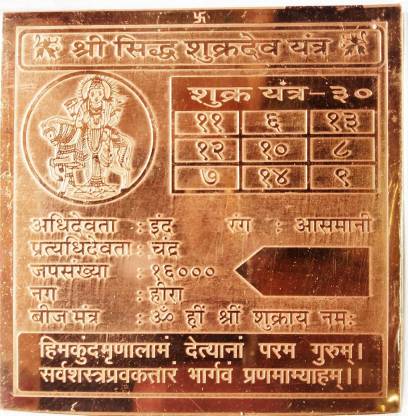 卐
श्री सिद्ध शुक्रदेव यंत्र
शुक्र यंत्र-३०
११ ६ १३
१२ १० ८
७ १४ ९
अधिदेवता : इंद्र रंग : आसमानी
प्रत्यधिदेवता : चंद्र
जपसंख्या : १६०००
नग : हीरा
बीज मंत्र : ॐ ह्रीं श्रीं शुक्राय नमः
हिमकुंदमृणालामं दैत्यानां परम गुरुम।
सर्वशस्त्रप्रवक्तारं भार्गवं प्रणमाम्याहम्।।